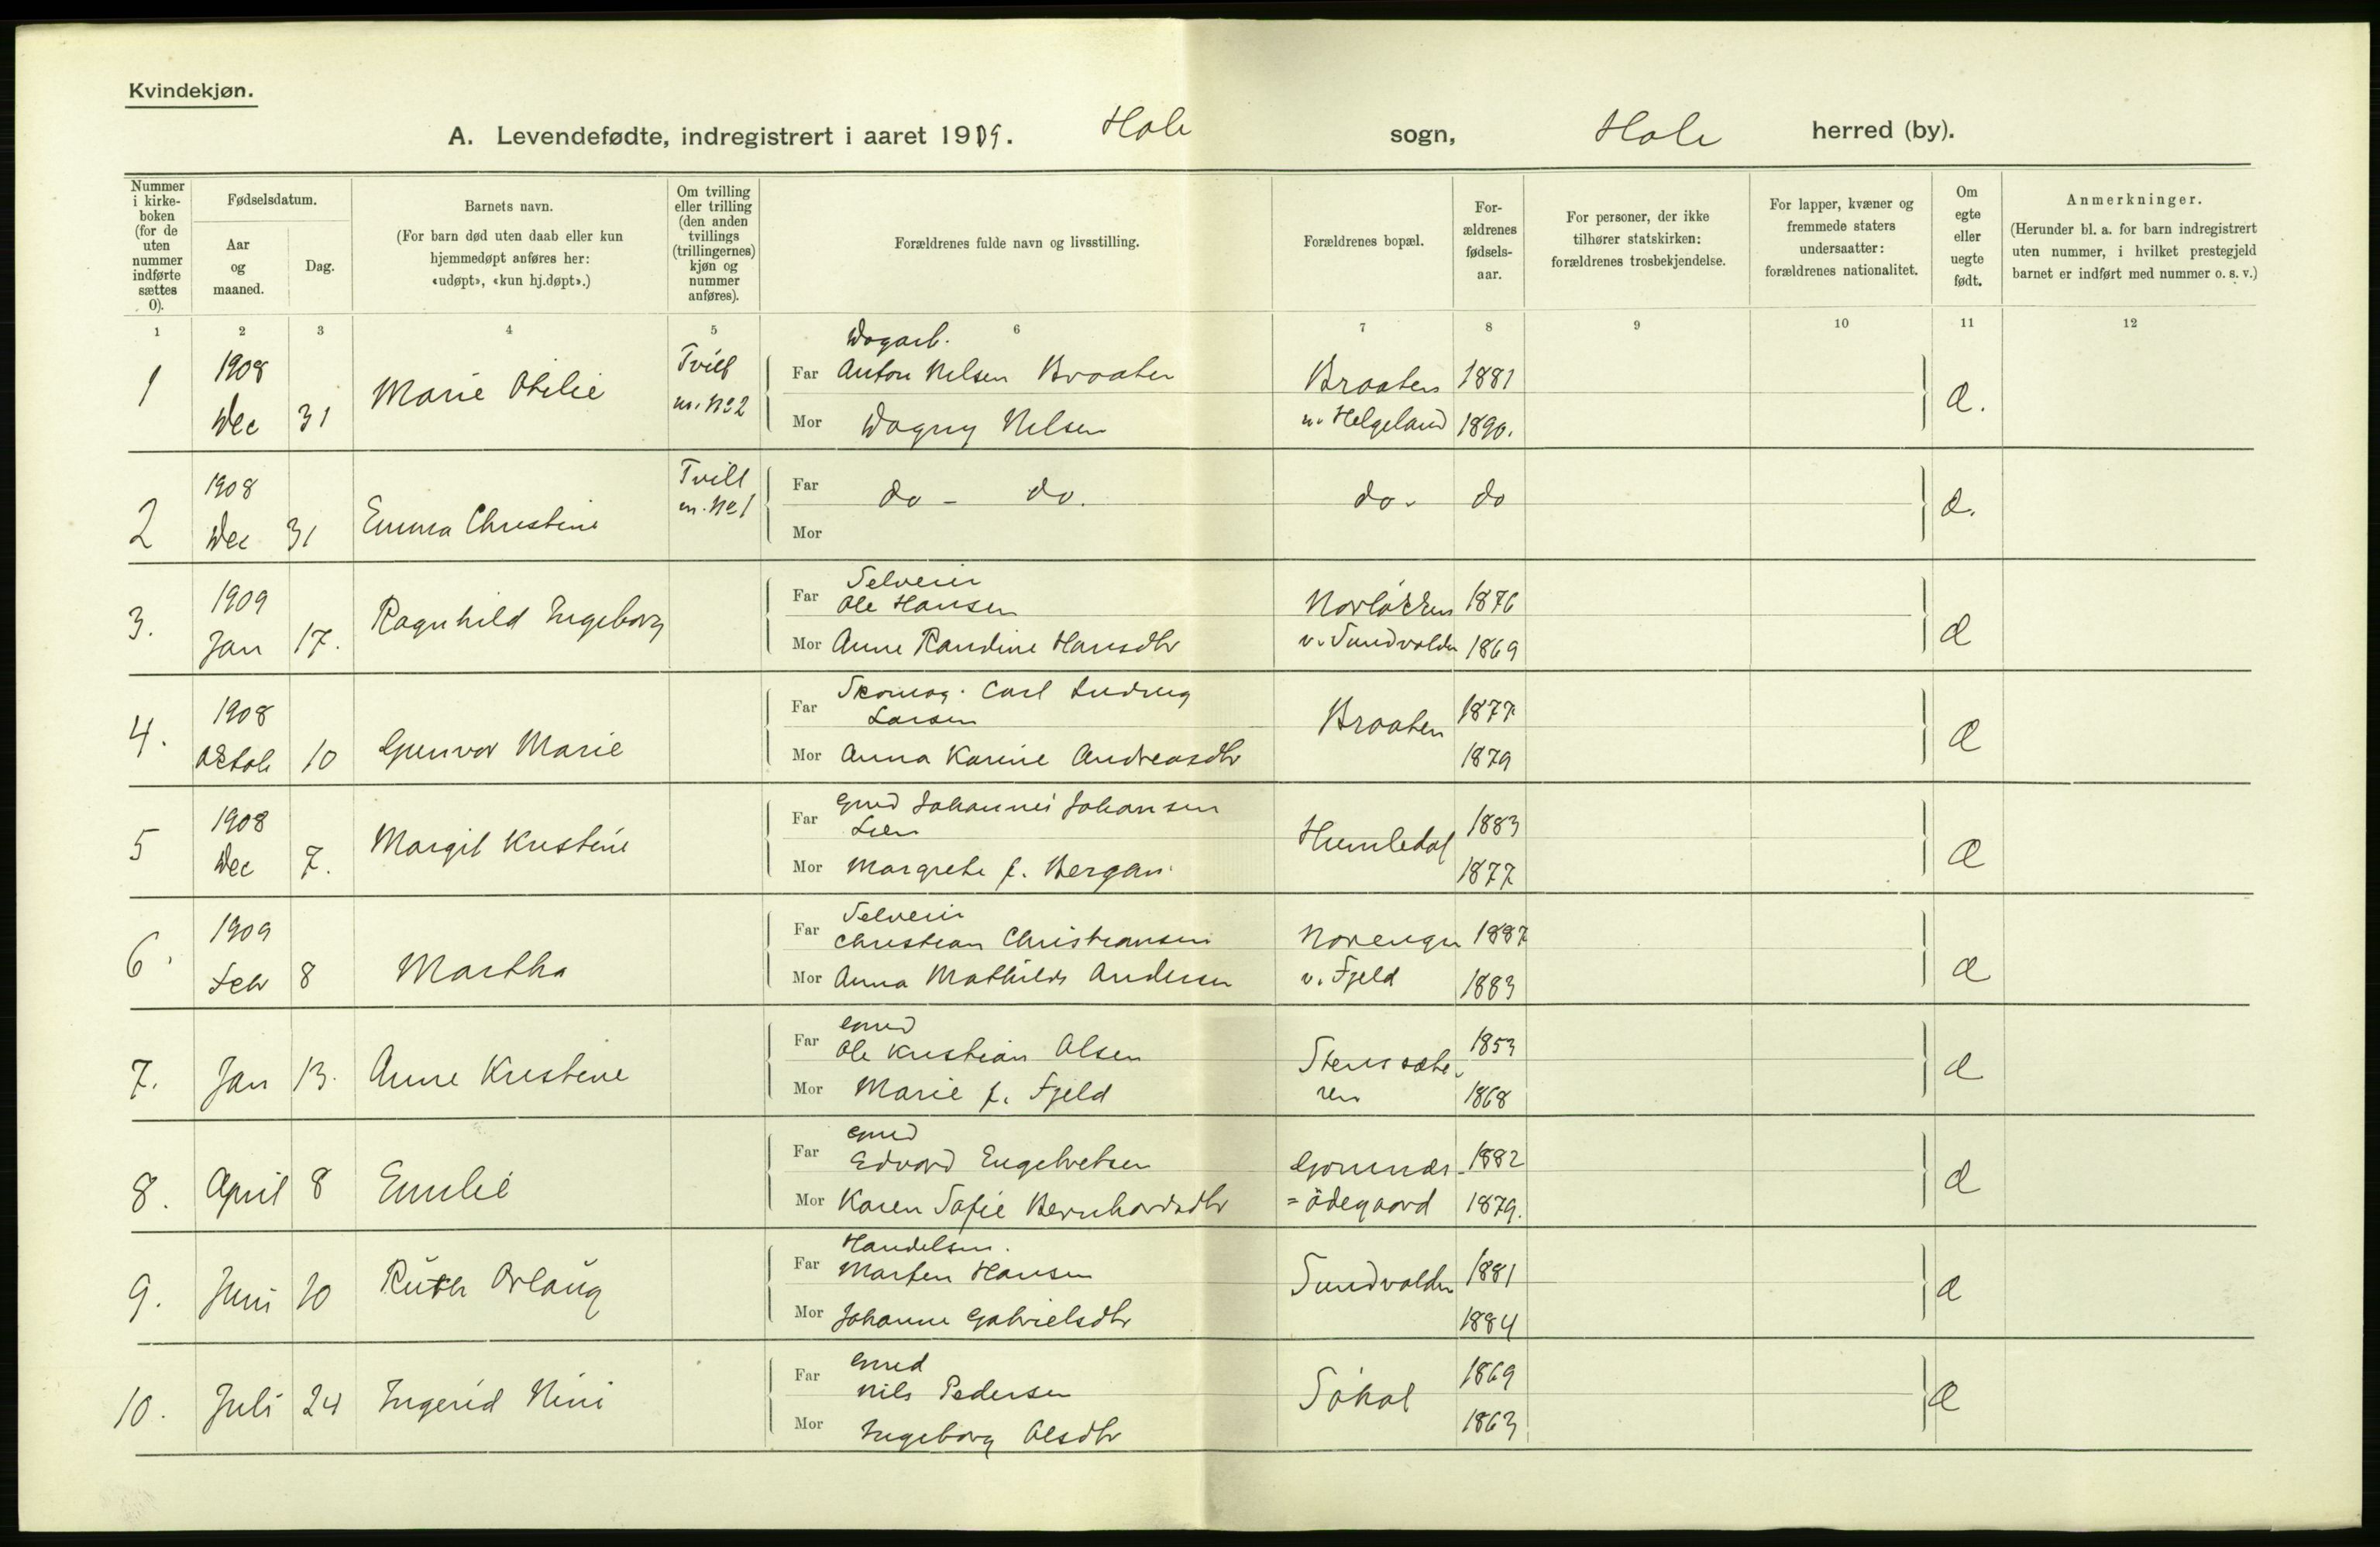 Kvindekjøn.
A. Levendefødte, indregistrert i aaret 1909. Hole sogn, Hole herred (by).
Nummer i kirke-boken (for de uten nummer indførte sættes 0).
Fødselsdatum.
Aar og maaned.
Dag.
Barnets navn.
(For barn død uten daab eller kun hjemmedøpt anføres her: «udøpt», «kun hj.døpt».)
Om tvilling eller trilling (den anden tvillings (trillingernes) kjøn og nummer anføres).
Forældrenes fulde navn og livsstilling.
Forældrenes bopæl.
For-ældrenes fødsels-aar.
For personer, der ikke tilhører statskirken: forældrenes trosbekjendelse.
For lapper, kvæner og fremmede staters undersaatter: forældrenes nationalitet.
Om egte eller uegte født.
Anmerkninger.
(Herunder bl. a. for barn indregistrert uten nummer, i hvilket prestegjeld barnet er indført med nummer o. s. v.)
1 2 3 4 5 6 7 8 9 10 11 12
1 1908 Dec 31 Marie Otilie Tvill m. No 2
Dagarb.
Far Anton Nelsen Braaten Braaten 1881
Mor Dagny Nelsen u. Helgeland 1890. Æ.
2 1908 Dec 31 Emma Christine Tvill m. No 1
Far do - do. do. do Æ.
Mor
3. 1909 Jan 17. Ragnhild Ingeborg
Selveier
Far Ole Hansen Norløkken 1876
Mor Anne Randine Hansdtr v. Sundvolden 1869 Æ
4. 1908 Oktob 10 Gunvor Marie
Far Skomag. Carl Ludvig
Larsen Braaten 1877
Mor Anna Karine Andreasdtr 1879 Æ
5 1908 Dec 7. Margit Kristine
Far Gmd Johannes Johansen
Lien Humledal 1883
Mor Margrete f. Bergan 1877 Æ
6. 1909 Feb 8 Martha
Selveier
Far Christian Christiansen Norengen 1887
Mor Anna Mathilde Andersen v. Fjeld 1883 Æ
7. Jan 13. Anne Kristine
Gmd
Far Ole Kristian Olsen Stenssæte 1853
Mor Marie f. Fjeld ren 1868 Æ
8. April 8 Emilie
Gmd
Far Edvard Engebretsen Gomnæs 1882
Mor Karen Sofie Bernhardsdtr = ödegaard 1879. Æ
9. Juni 10 Ruth Orlaug
Handelsm.
Far Marten Hansen Sundvolden 1881
Mor Johanne Gabrielsdtr 1884 Æ
10. Juli 24 Ingerid Nini
Gmd
Far Nils Pedersen Søhol 1869
Mor Ingeborg Olsdtr 1863 Æ